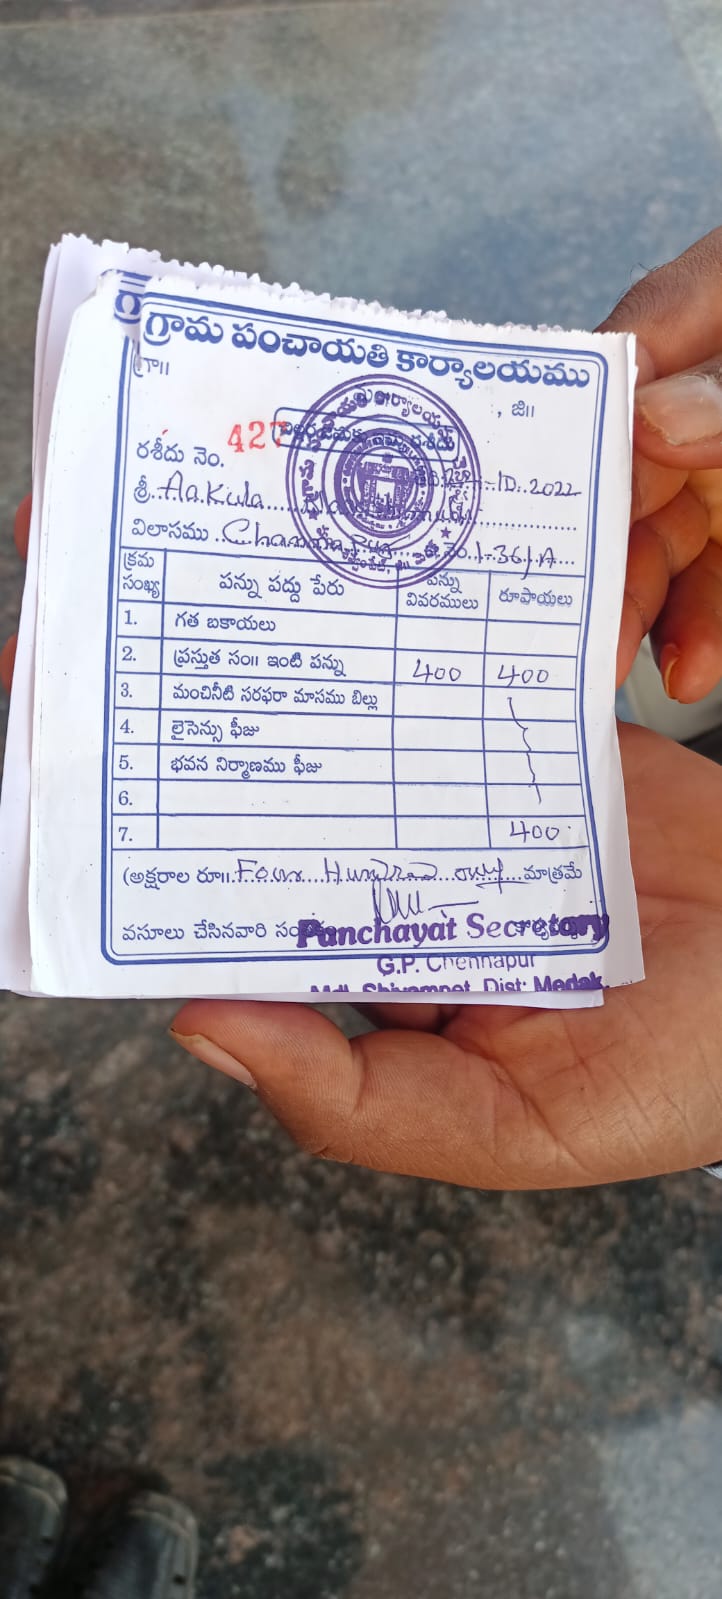 గ్రామ పంచాయతి కార్యాలయము
గ్రా॥ , జి॥
రశీదు నెం. 427 10.2022
శ్రీ Aakula
విలాసము ఇ.నెం. 1-36/A
క్రమ సంఖ్య పన్ను పద్దు పేరు పన్ను వివరములు రూపాయలు
1. గత బకాయలు
2. ప్రస్తుత సం॥ ఇంటి పన్ను 400 400
3. మంచినీటి సరఫరా మాసము బిల్లు
4. లైసెన్సు ఫీజు
5. భవన నిర్మాణము ఫీజు
6.
7. 400
(అక్షరాల రూ॥ Four Hundred only మాత్రమే
వసూలు చేసినవారి
Panchayat Secretary
G.P. Chennapur
Mdl. Shivampet, Dist: Medak.